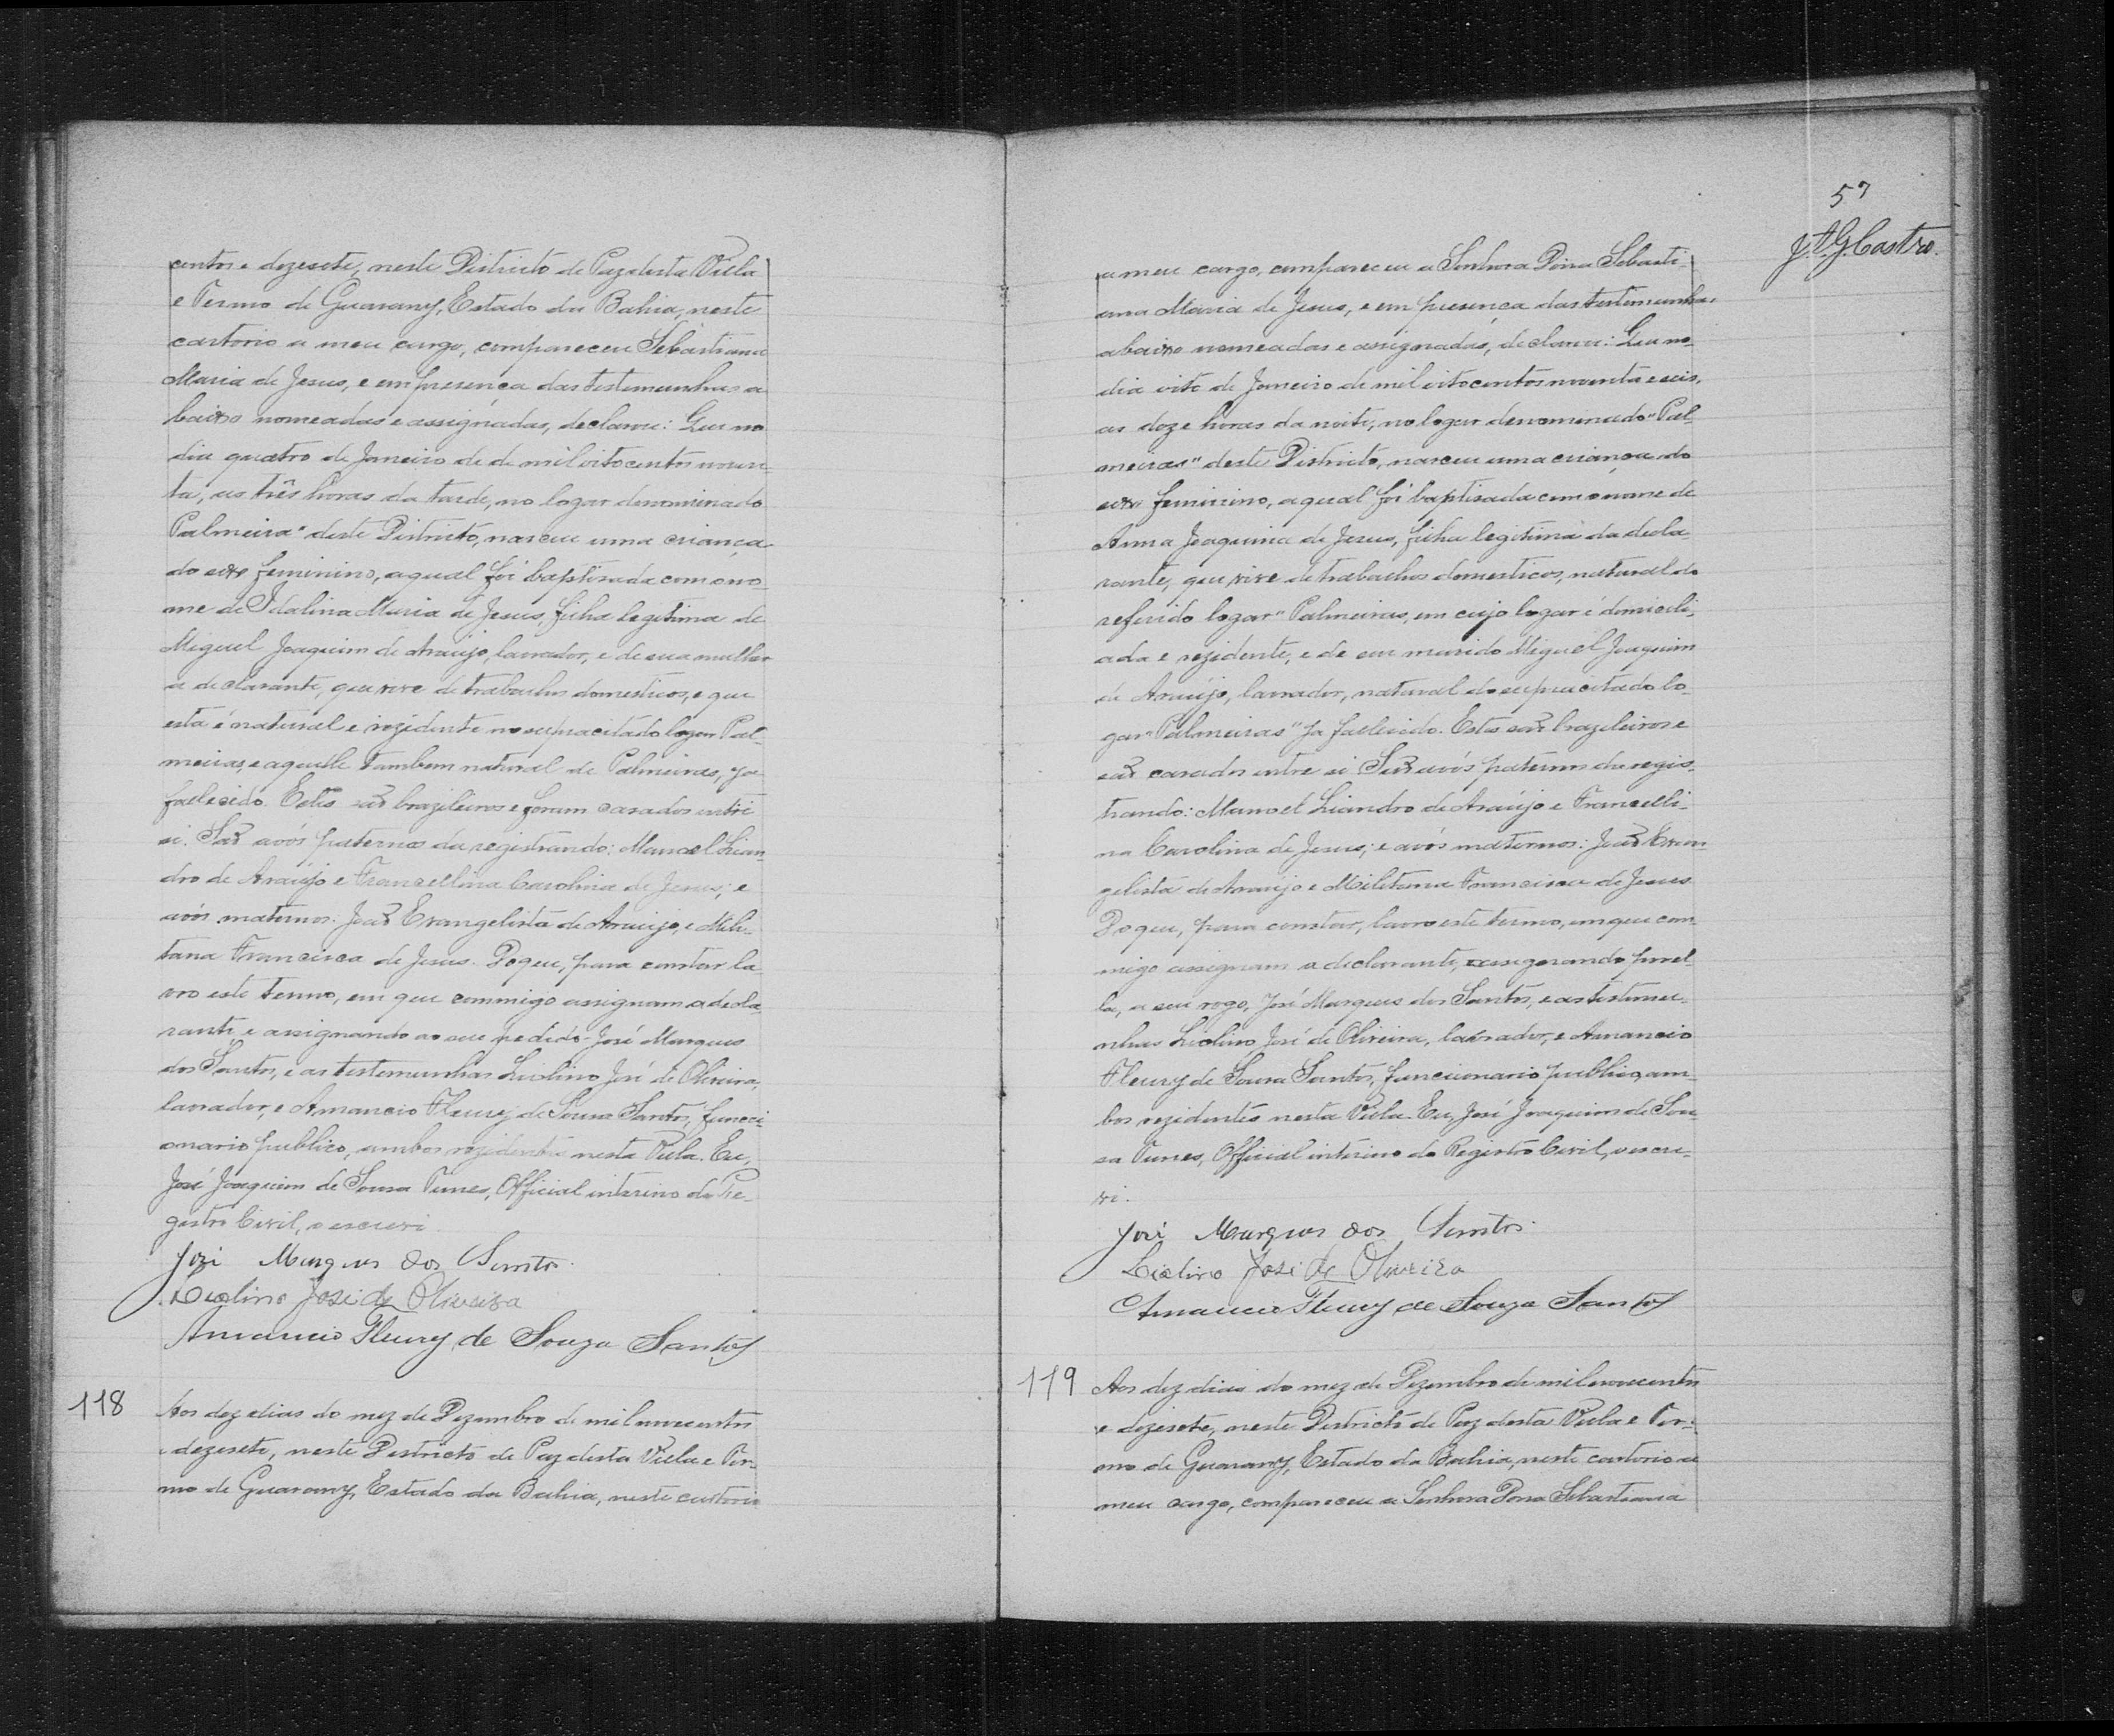 centos e dezesete, neste Districto de Paz desta Villa
e Termo de Guarany, Estado da Bahia, neste
cartorio a meu cargo, compareceu Sebastiana
Maria de Jesus, e em presença das testemunhas a
baixo nomeadas e assignadas, declarou: Que no
dia quatro de Janeiro de de mil oitocentos noven-
ta, as três horas da tarde, no logar denominado
Palmeira" deste Districto, nasceu uma criança
do sexo feminino, a qual foi baptisada com o no-
me de Idalina Maria de Jesus, filha legitima de
Miguel Joaquim de Araujo, lavrador, e de sua mulher
a declarante, que vive de trabalhos domesticos, e que
esta é natural e rezidente no supracitado logar Pal-
meiras, e aquelle tambem natural de Palmeiras, ja
fallecido. Estes são brazileiros e foram casados entre
si. São avós paternos da registrando: Manoel Lian-
dro de Araujo e Francellina Carolina de Jesus; e
avós maternos: João Evangelista de Araujo, e Mili-
tana Francisca de Jesus. Do que, para constar la-
vro este termo, em que commigo assignam a decla
rante e assignando ao seu pedido José Marques
dos Santos, e as testemunhas Liolino José de Oliveira,
lavrador, e Amancio Fleury de Sousa Santos, funcci-
onario publico, ambos rezidentes nesta Villa. Eu,
José Joaquim de Sousa Tunes, Official interino do Re-
gistro Civil, o escrevi
José Marques dos Santos
Liolino José de Oliveira
Amancio Fleury de Souza Santos
118
Aos dez dias do mez de Dezembro de mil novecentos
e dezesete, neste Districto de Paz desta Villa e Ter-
mo de Guarany, Estado da Bahia, neste cartorio
57
J. A. G. Castro.
a meu cargo, compareceu a Senhora Dona Sebasti-
ana Maria de Jesus, e em presença das testemunhas
abaixo nomeadas e assignadas, declarou: Que no
dia oito de Janeiro de mil oitocentos noventa e seis,
as doze horas da noite, no logar denominado "Pal-
meiras" deste Districto, nasceu uma criança do
sexo feminino, a qual foi baptisada com o nome de
Anna Joaquina de Jesus, filha legitima da decla
rante, que vive de trabalhos domesticos, natural do
referido logar "Palmeiras, em cujo logar é domicili-
ada e rezidente, e de seu marido Miguel Joaquim
de Araujo, lavrador, natural do supracitado lo-
gar "Palmeiras" ja fallecido. Estes são brazileiros e
são casados entre si. São avós paternos da regis-
trando: Manoel Liandro de Araujo e Francelli-
na Carolina de Jesus; e avós maternos: João Evan-
gelista de Araujo e Militana Francisca de Jesus.
Do que, para constar, lavro este termo, em que com-
migo assignam a declarante, assignando por el-
la, a seu rogo, José Marques dos Santos, e as testemu-
nhas Liolino José de Oliveira, lavrador, e Amancio
Fleury de Sousa Santos, funccionario publico, am-
bos rezidentes nesta Villa. Eu, José Joaquim de Sou-
sa Tunes, Official interino do Registro Civil, o escre-
vi.
José Marques dos Santos
Liolino José de Oliveira
Amancio Fleury de Souza Santos
119
Aos dez dias do mez de Dezembro de mil novecentos
e dezesete, neste Districto de Paz desta Villa e Ter-
mo de Guarany, Estado da Bahia, neste cartorio a
meu cargo, compareceu a Senhora Dona Sebastiana